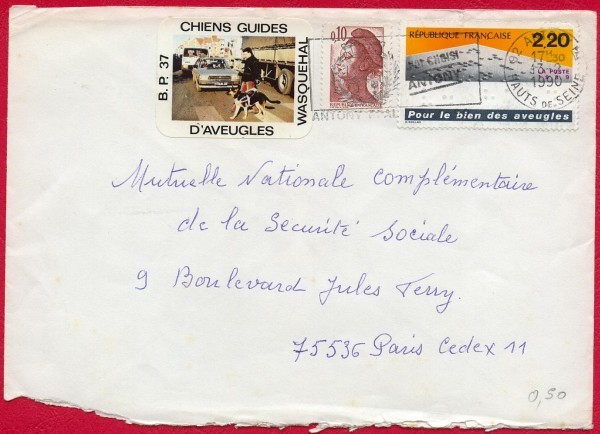 CHIENS GUIDES
B.P. 37
WASQUEHAL
D'AVEUGLES
0,10
RÉPUBLIQUE FRANÇAISE
2,20
LA POSTE
Pour le bien des aveugles
ANTONY
ANTONY
17 H 30
1990
HAUTS DE SEINE
Mutuelle Nationale Complémentaire
de la Sécurité Sociale
9 Boulevard Jules Ferry.
75536 Paris Cedex 11
0,50